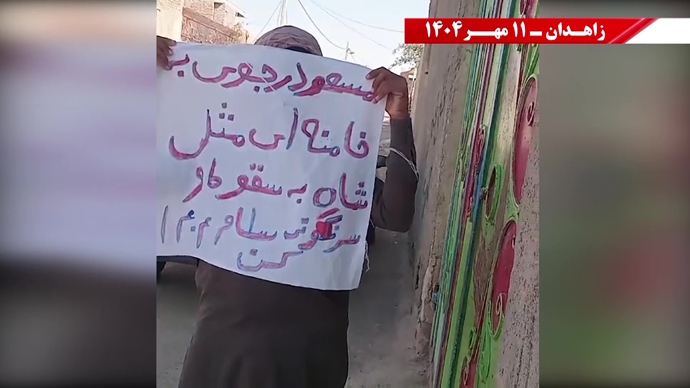 زاهدان – ۱۱ مهر ۱۴۰۴
مسعود رجوی به
خامنه ای مثل
شاه به سقوط و
سرنگونی سلام
کن